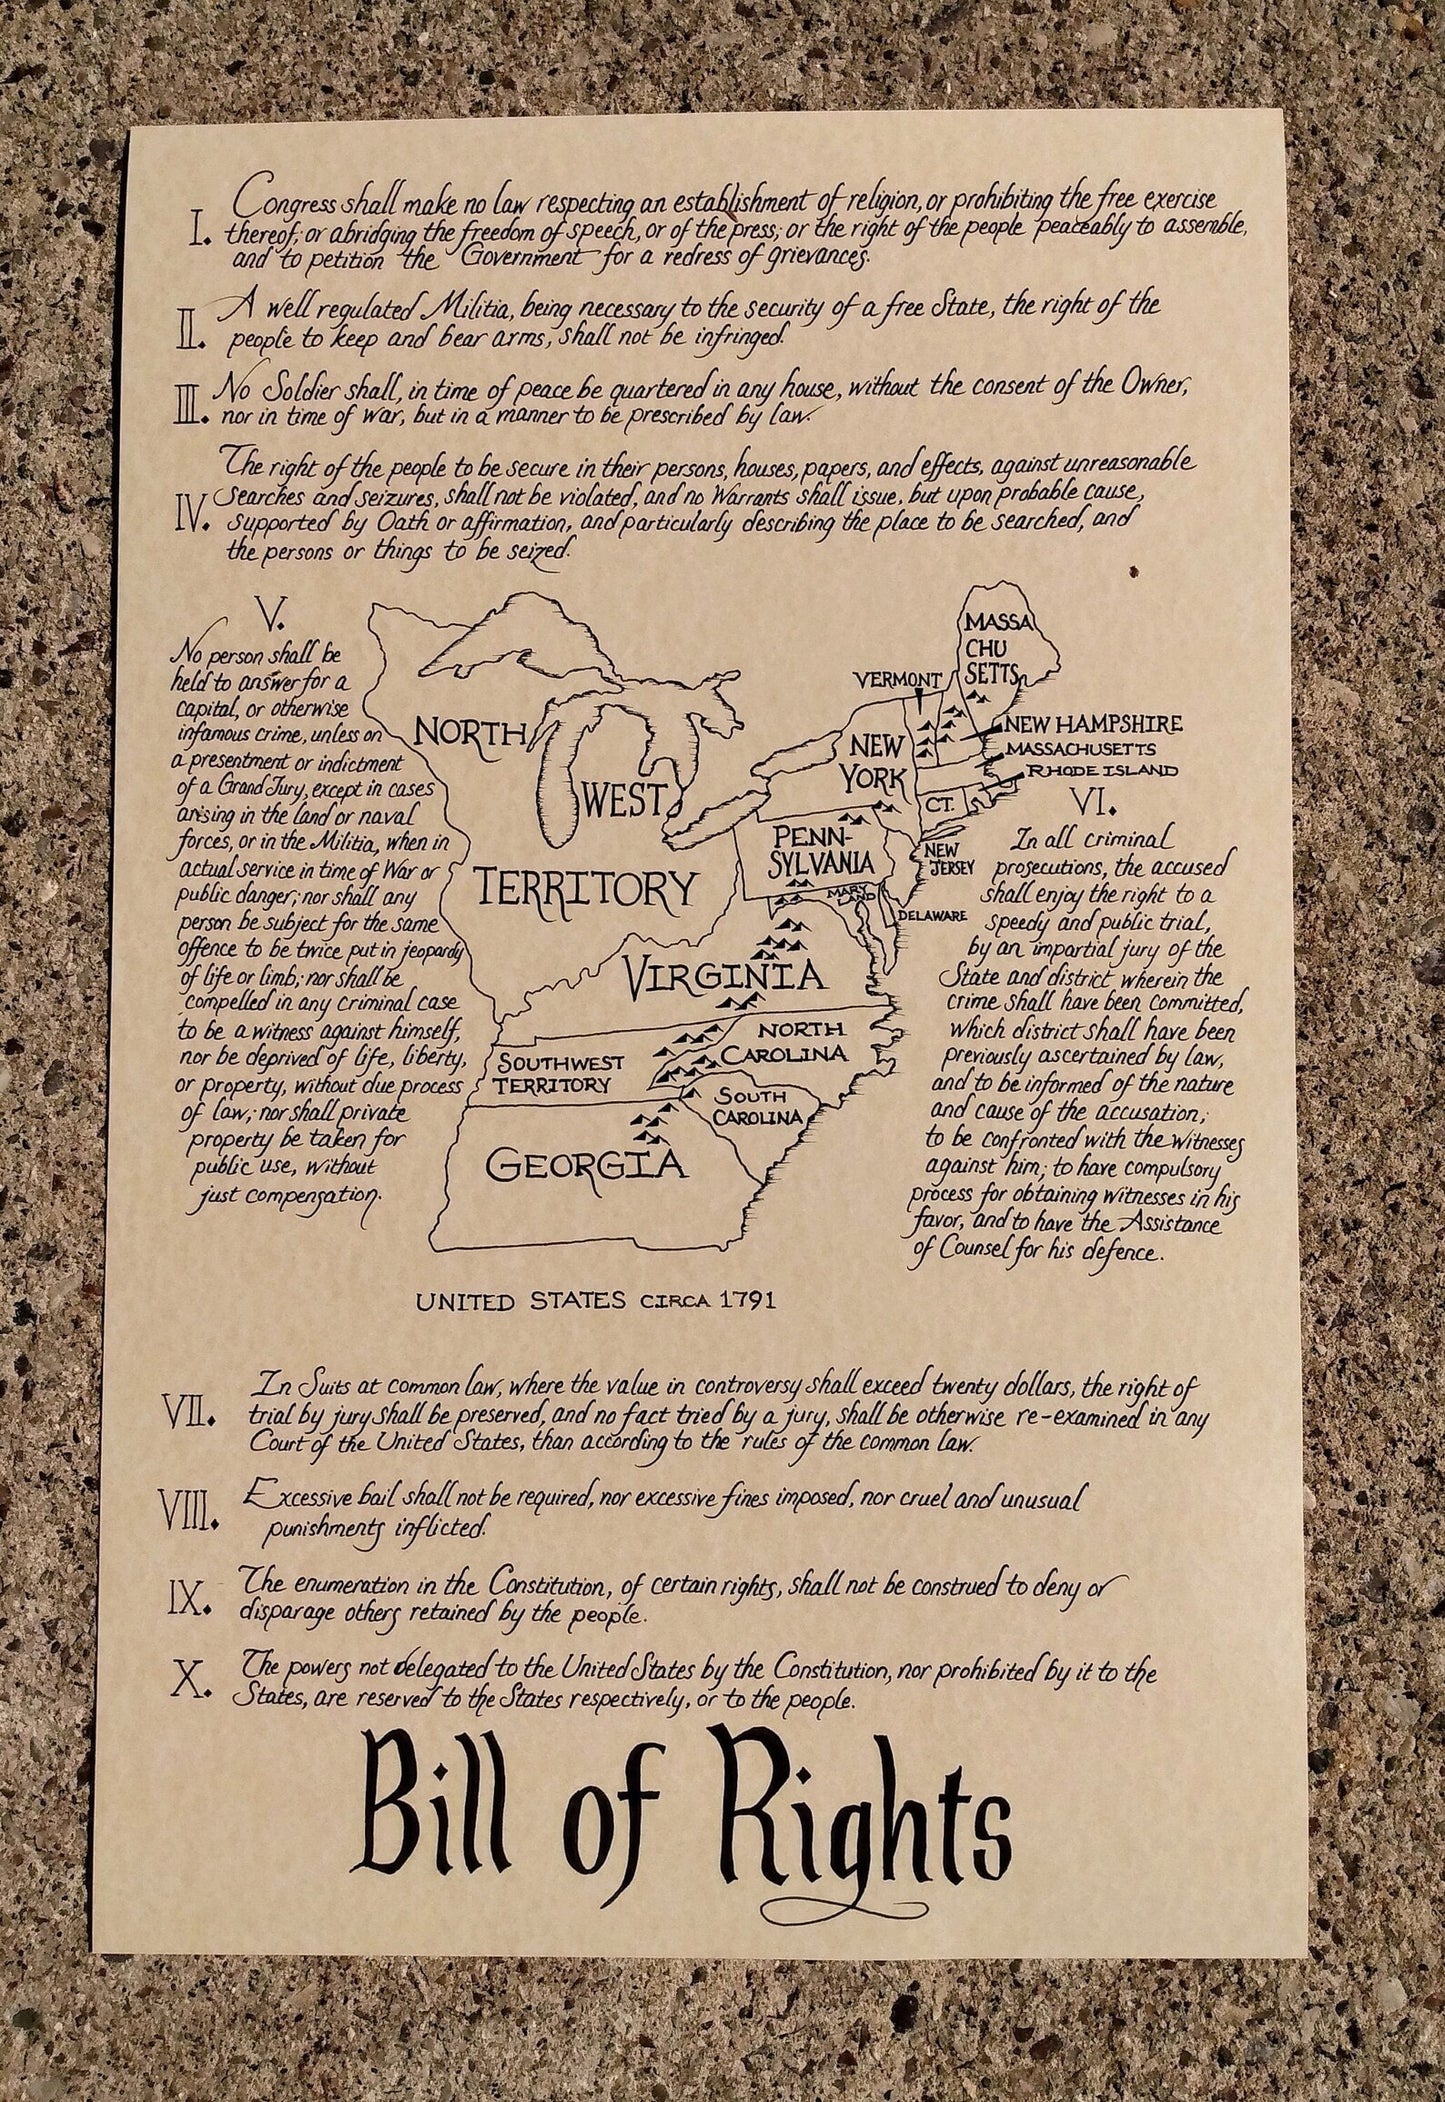 I.
Congress shall make no law respecting an establishment of religion, or prohibiting the free exercise
thereof; or abridging the freedom of speech, or of the press; or the right of the people peaceably to assemble,
and to petition the Government for a redress of grievances.
II.
A well regulated Militia, being necessary to the security of a free State, the right of the
people to keep and bear arms, shall not be infringed.
III.
No Soldier shall, in time of peace be quartered in any house, without the consent of the Owner,
nor in time of war, but in a manner to be prescribed by law.
IV.
The right of the people to be secure in their persons, houses, papers, and effects, against unreasonable
searches and seizures, shall not be violated, and no Warrants shall issue, but upon probable cause,
supported by Oath or affirmation, and particularly describing the place to be searched, and
the persons or things to be seized.
V.
No person shall be
held to answer for a
capital, or otherwise
infamous crime, unless on
a presentment or indictment
of a Grand Jury, except in cases
arising in the land or naval
forces, or in the Militia, when in
actual service in time of War or
public danger; nor shall any
person be subject for the same
offence to be twice put in jeopardy
of life or limb; nor shall be
compelled in any criminal case
to be a witness against himself,
nor be deprived of life, liberty,
or property, without due process
of law; nor shall private
property be taken for
public use, without
just compensation.
MASSA
CHU
SETTS
VERMONT
NEW HAMPSHIRE
MASSACHUSETTS
RHODE ISLAND
NORTH
WEST
TERRITORY
NEW
YORK
CT.
PENN-
SYLVANIA
NEW
JERSEY
MARY
LAND
DELAWARE
VIRGINIA
NORTH
CAROLINA
SOUTHWEST
TERRITORY
SOUTH
CAROLINA
GEORGIA
UNITED STATES CIRCA 1791
VI.
In all criminal
prosecutions, the accused
shall enjoy the right to a
speedy and public trial,
by an impartial jury of the
State and district wherein the
crime shall have been committed,
which district shall have been
previously ascertained by law,
and to be informed of the nature
and cause of the accusation;
to be confronted with the witnesses
against him; to have compulsory
process for obtaining witnesses in his
favor, and to have the Assistance
of Counsel for his defence.
VII.
In Suits at common law, where the value in controversy shall exceed twenty dollars, the right of
trial by jury shall be preserved, and no fact tried by a jury, shall be otherwise re-examined in any
Court of the United States, than according to the rules of the common law.
VIII.
Excessive bail shall not be required, nor excessive fines imposed, nor cruel and unusual
punishments inflicted.
IX.
The enumeration in the Constitution, of certain rights, shall not be construed to deny or
disparage others retained by the people.
X.
The powers not delegated to the United States by the Constitution, nor prohibited by it to the
States, are reserved to the States respectively, or to the people.
Bill of Rights